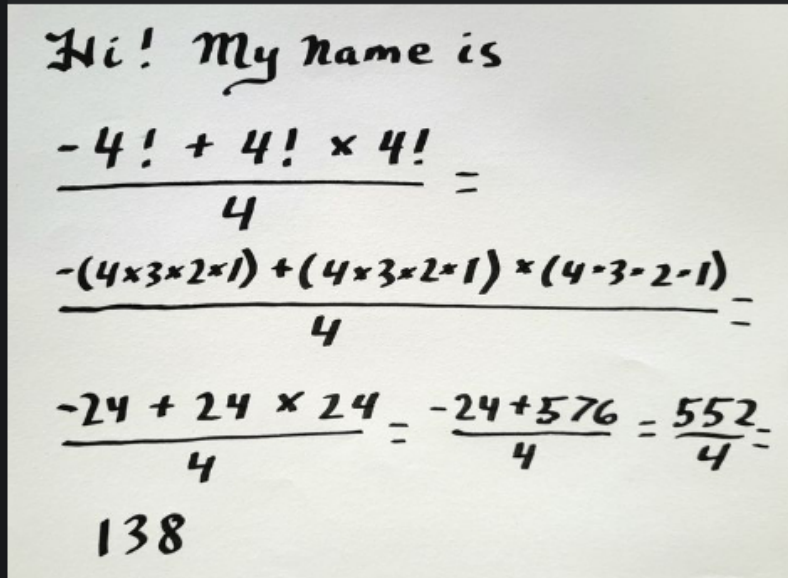 Hi! My name is
-4! + 4! × 4!
4 =
-(4×3×2×1) + (4×3×2×1) × (4·3·2·1)
4 =
-24 + 24 × 24 = -24+576 = 552 =
4 4 4
138